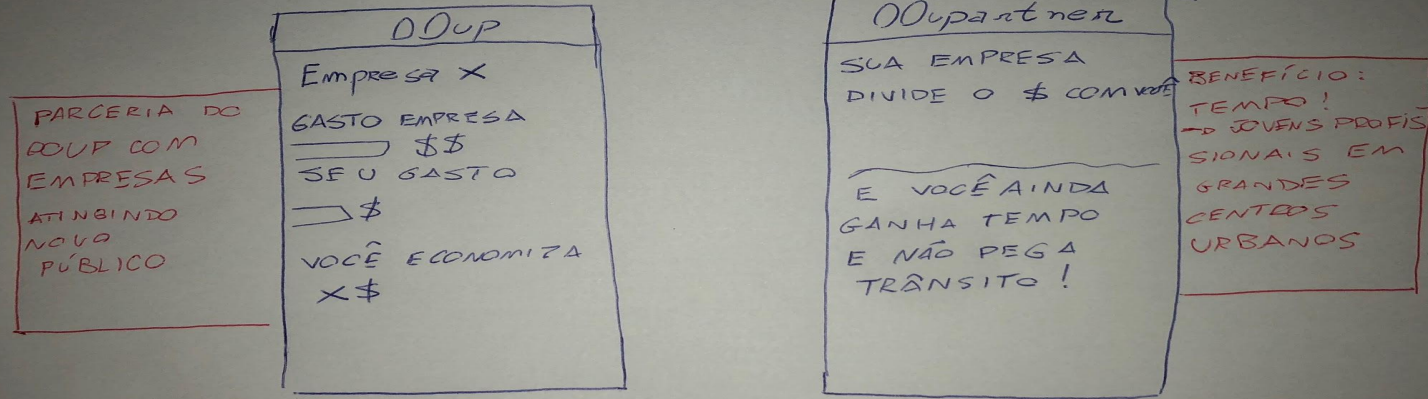 PARCERIA DO
DOUP COM
EMPRESAS
ATINGINDO
NOVO
PÚBLICO
DOUP
Empresa X
GASTO EMPRESA
$$
SEU GASTO
$
VOCÊ ECONOMIZA
X$
DOupartner
SUA EMPRESA
DIVIDE O $ COM VOCÊ
E VOCÊ AINDA
GANHA TEMPO
E NÃO PEGA
TRÂNSITO!
BENEFÍCIO:
TEMPO!
→ JOVENS PROFIS
SIONAIS EM
GRANDES
CENTROS
URBANOS